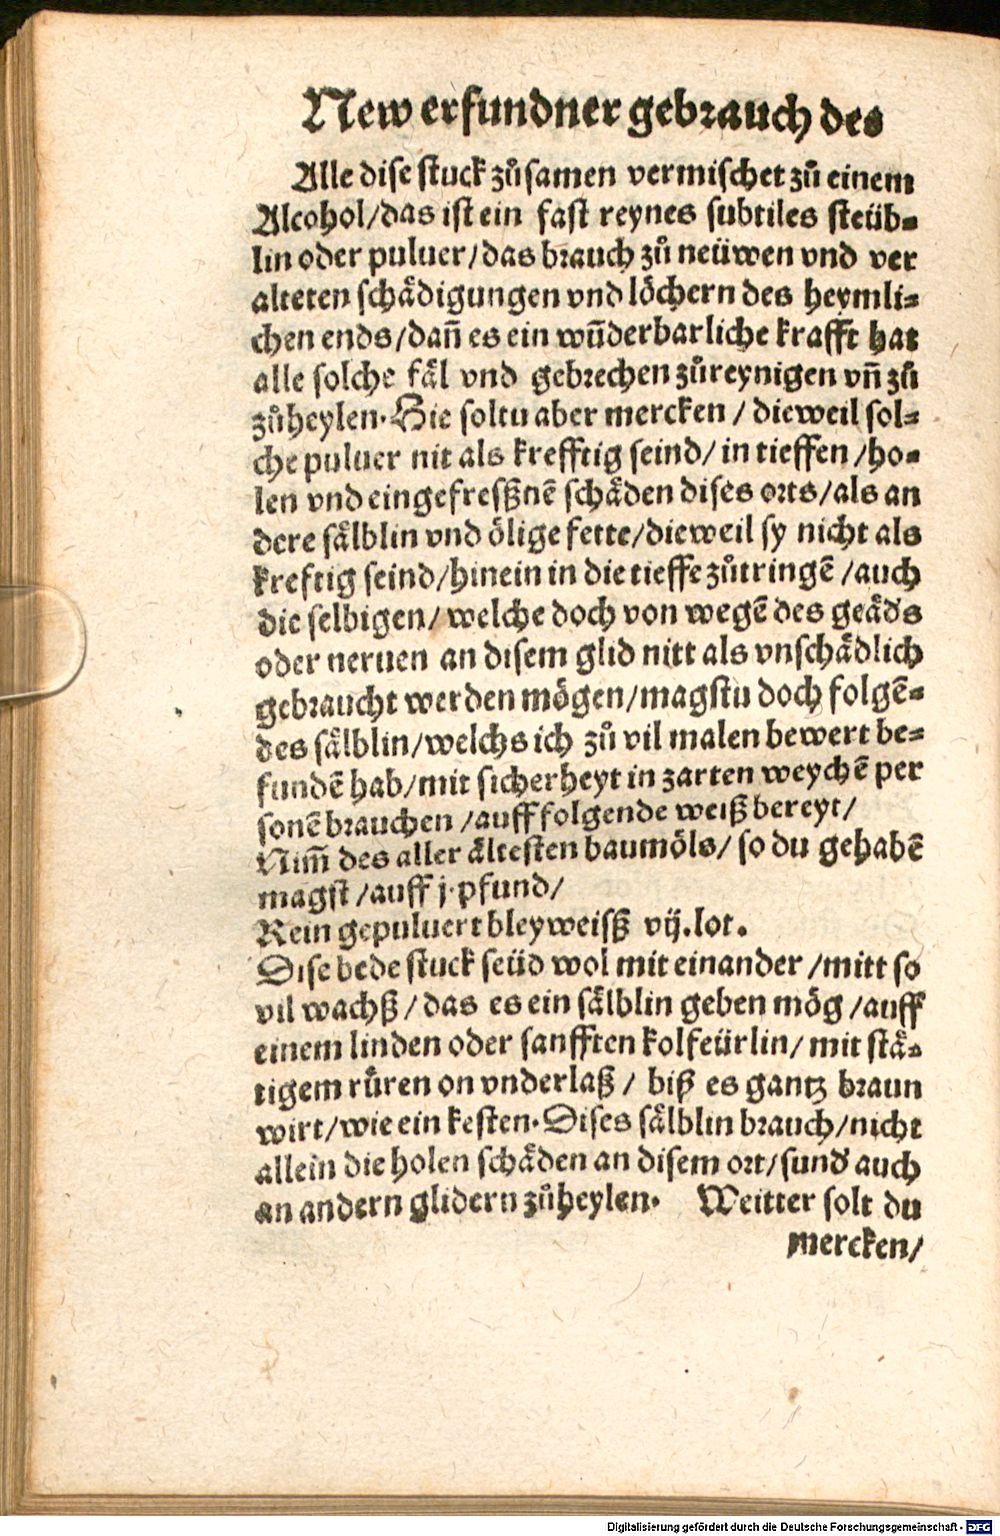 New erfundner gebrauch des
Alle dise stuck zůsamen vermischet zů einem
Alcohol/das ist ein fast reynes subtiles steüb-
lin oder puluer/das brauch zů neüwen vnd ver
alteten schädigungen vnd löchern des heymli-
chen ends/dañ es ein wūderbarliche krafft hat
alle solche fäl vnd gebrechen zůreynigen vñ zů
zůheylen. Hie soltu aber mercken / dieweil sol-
che puluer nit als krefftig seind/ in tieffen /ho-
len vnd eingefressznē schäden dises orts/als an
dere sälblin vnd ölige fette/dieweil sy nicht als
kreftig seind/hinein in die tieffe zůtringē /auch
die selbigen/ welche doch von wegē des geäds
oder neruen an disem glid nitt als vnschädlich
gebraucht werden mögen/magstu doch folgē-
des sälblin/welchs ich zů vil malen bewert be-
fundē hab/mit sicherheyt in zarten weychē per
sonē brauchen /auff folgende weiß bereyt/
Nim̄ des aller ältesten baumöls/ so du gehabē
magst /auff j. pfund/
Rein gepuluert bleyweisß vij. lot.
Dise bede stuck seüd wol mit einander /mitt so
vil wachß / das es ein sälblin geben mög /auff
einem linden oder sanfften kolfeürlin/ mit stä-
tigem růren on vnderlaß / biß es gantz braun
wirt/wie ein kesten. Dises sälblin brauch/nicht
allein die holen schäden an disem ort/sund' auch
an andern glidern zůheylen. Weitter solt du
mercken/
Digitalisierung gefördert durch die Deutsche Forschungsgemeinschaft - DFG